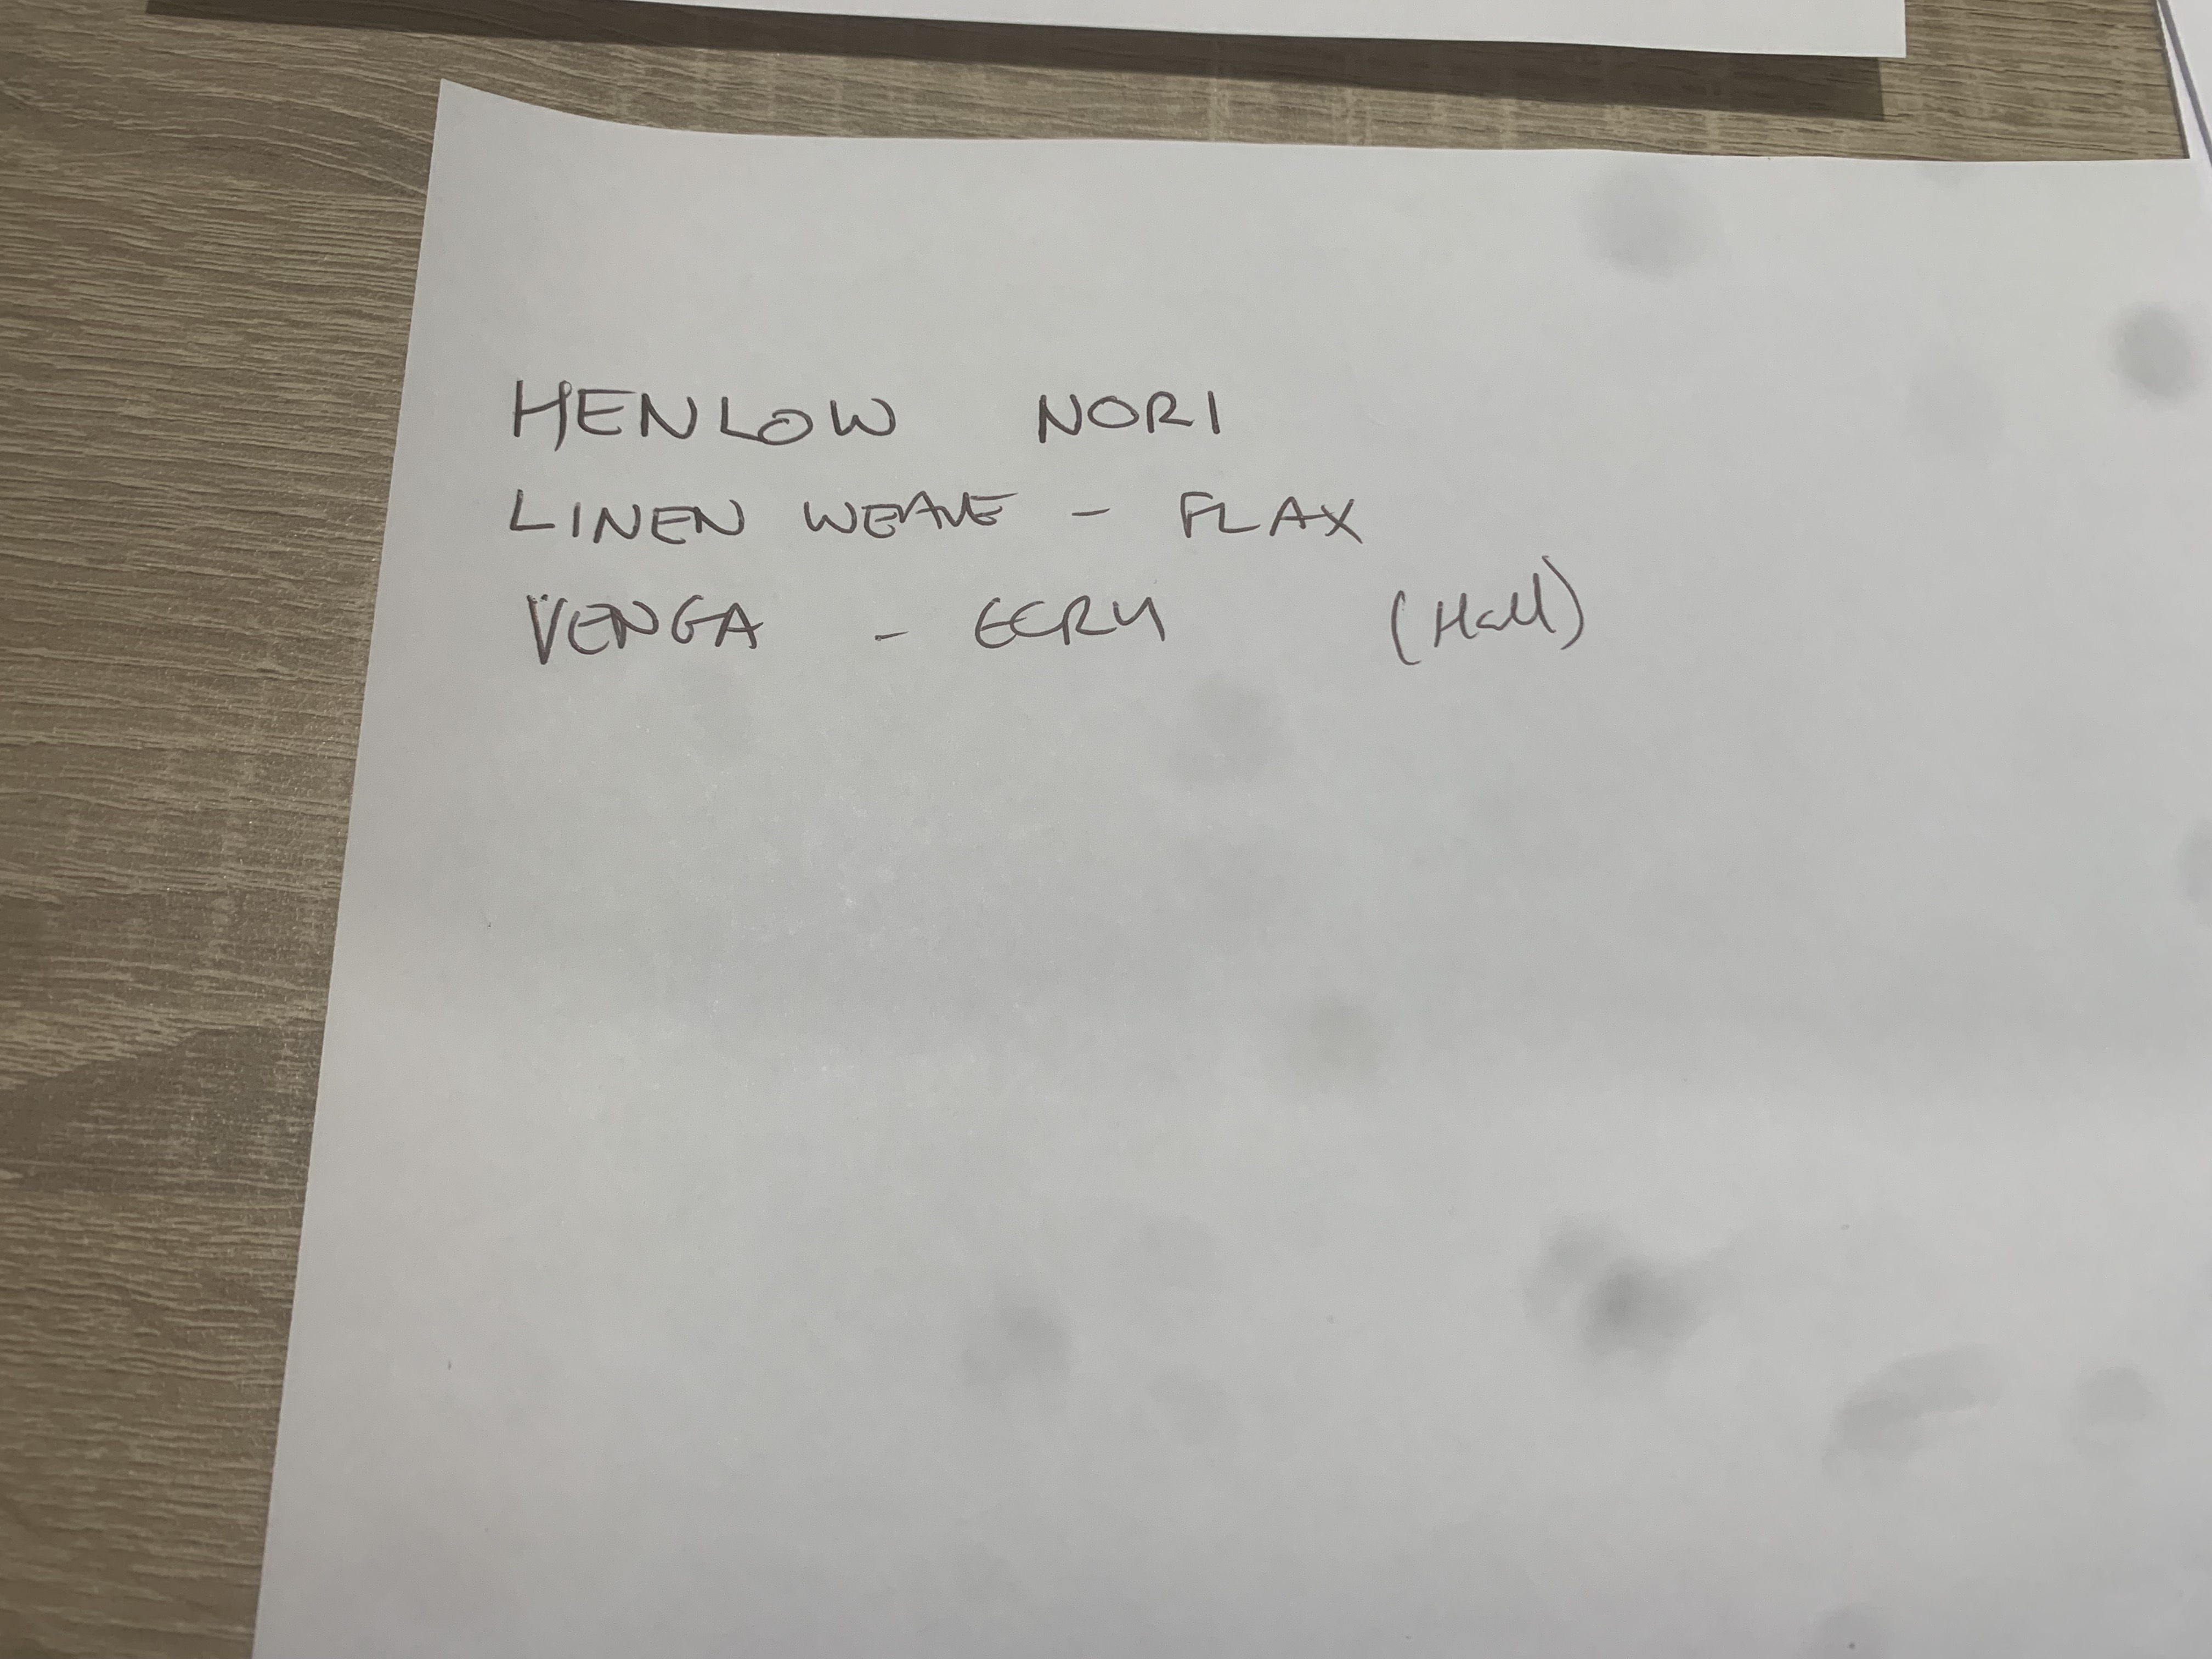 HENLOW NORI
LINEN WEAVE - FLAX
VENGA - ECRU (Hall)